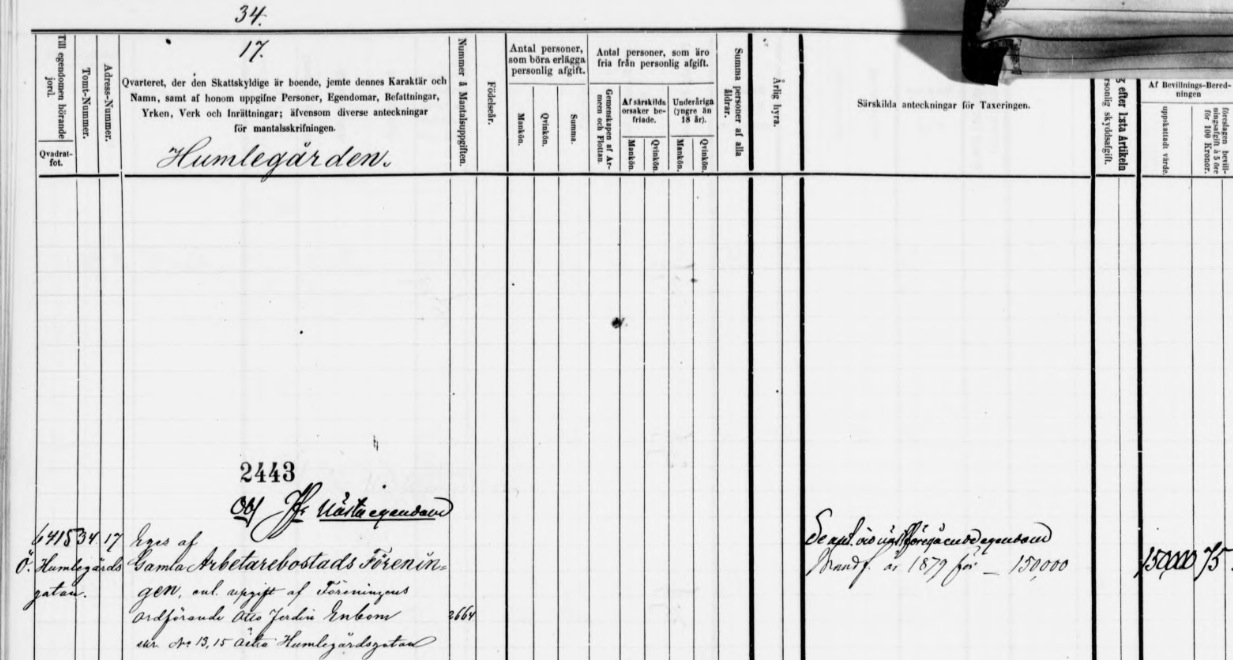 34.
17.
Till egendomen hörande jord.
Qvadrat-fot.
Tomt-Nummer.
Adress-Nummer.
Qvarteret, der den Skattskyldige är boende, jemte dennes Karaktär och
Namn, samt af honom uppgifne Personer, Egendomar, Befattningar,
Yrken, Verk och Inrättningar; äfvensom diverse anteckningar
för mantalsskrifningen.
Humlegården.
Nummer å Mantalsuppgiften.
Födelseår.
Antal personer,
som böra erlägga
personlig afgift.
Mankön.
Qvinkön.
Summa.
Antal personer, som äro
fria från personlig afgift.
Gemenskapen af Ar-
meen och Flottan.
Af särskilda
orsaker be-
friade.
Mankön.
Qvinkön.
Underåriga
(yngre än
18 år).
Mankön.
Qvinkön.
Summa personer af alla
åldrar.
Årlig hyra.
Särskilda anteckningar för Taxeringen.
efter 1:sta Artikeln
personlig skyddsafgift.
Af Bevillnings-Bered-
ningen
uppskattadt värde.
föreslagen bevill-
ningsafgift à 5 öre
för 100 Kronor.
2443
Obs Jfr Nästa egendom
6415 34 17 Eges af
Ö. Humlegårds Gamla Arbetarebostads Förenin-
gatan. gen, enl. uppgift af Föreningens
ordförande Otto Ferdin Enbom 2664
N:o 13, 15 Östra Humlegårdsgatan
Se ant. vid nästföregående egendom
Brandf. år 1879 för _ 150,000
150,000 75